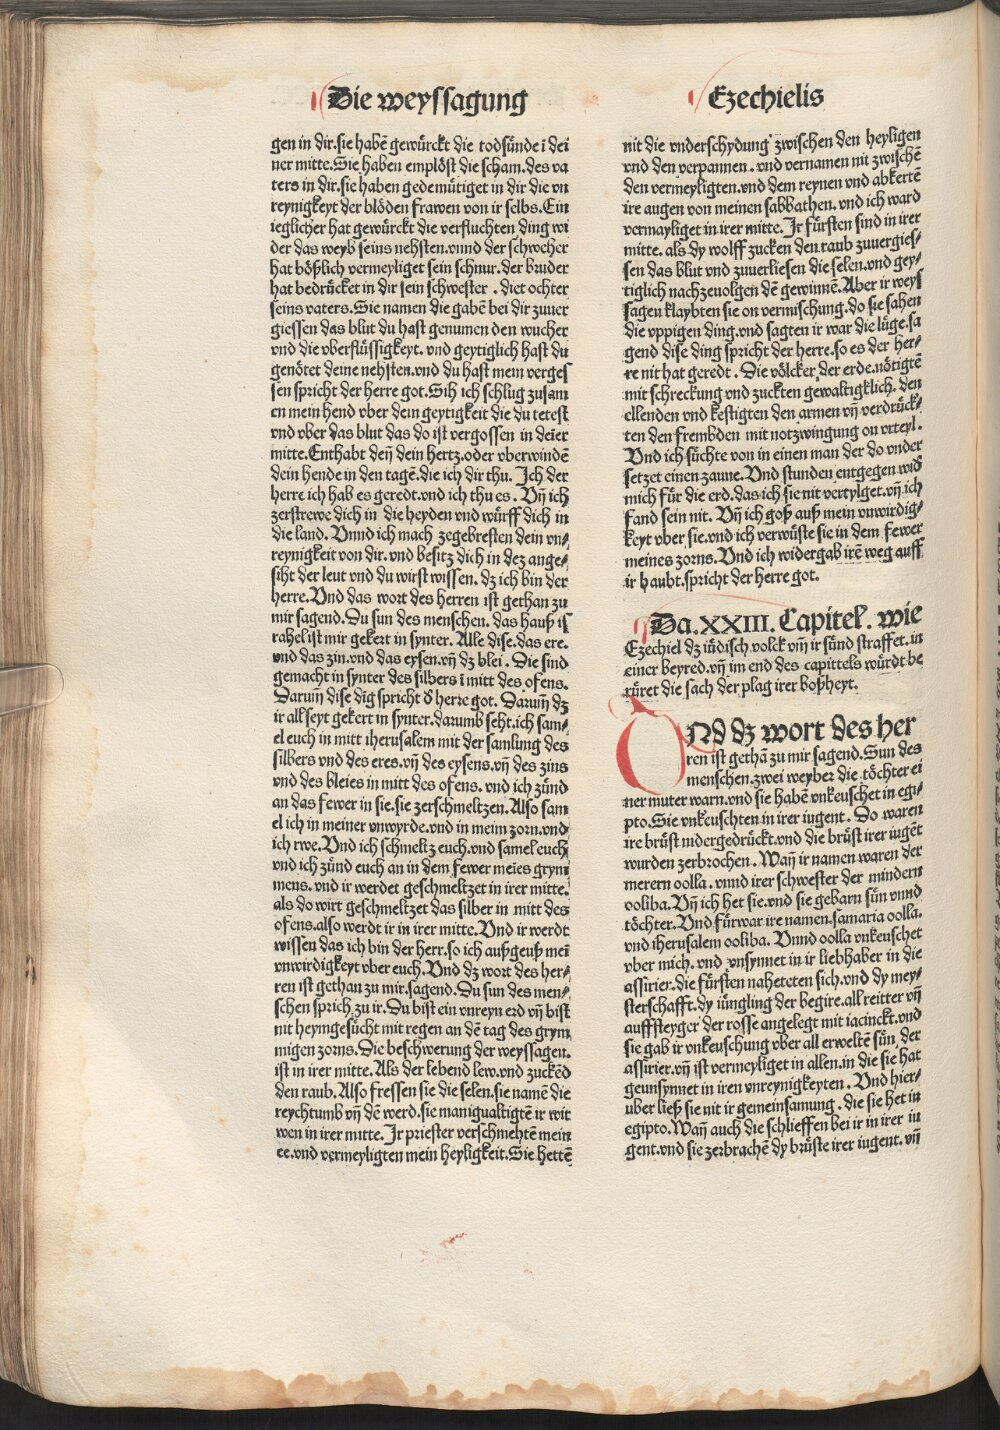 Die weyssagung
Ezechielis
gen in dir.sie habē gewürckt die todsünde ī dei
ner mitte.Sie haben emplöst die scham.des va
ters in dir.sie haben gedemütiget in dir die vn
reynigkeyt der blöden frawen von ir selbs.Ein
ieglicher hat gewürckt die verfluchten ding wi
der das weyb seins nehsten.vnnd der schweher
hat bößlich vermeyliget sein schnur.der bruder
hat bedrücket in dir sein schwester . diet ochter
seins vaters.Sie namen die gabē bei dir zuuer
giessen das blut du hast genumen den wucher
vnd die vberflüssigkeyt. vnd geytiglich hast du
genötet deine nehsten.vnd du hast mein verges
sen spricht der herre got.Sih ich schlug zusam
en mein hend vber dein geytigkeit die du tetest
vnd vber das blut das do ist vergossen in deīer
mitte.Enthabt deñ dein hertz.oder vberwindē
dein hende in den tagē.die ich dir thu. Ich der
herre ich hab es geredt.vnd ich thu es . Vñ ich
zerstrewe dich in die heyden vnd würff dich in
die land. Vnnd ich mach zegebresten dein vn⸗
reynigkeit von dir.vnd besitz dich in dez ange⸗
siht der leut vnd du wirst wissen. dz ich bin der
herre.Vnd das wort des herren ist gethan zu
mir sagend.Du sun des menschen. das hauß is
rahel ist mir gekert in synter. Alle dise.das ere.
vnd das zin.vnd das eysen.vñ dz blei . Die sind
gemacht in synter des silbers ī mitt des ofens.
Darum̄ dise dīg spricht d̄ herre got. Darum̄ dz
ir all seyt gekert in synter.darumb seht.ich sam⸗
el euch in mitt iherusalem mit der samlung des
silbers vnd des eres.vñ des eysens.vñ des zins
vnd des bleies in mitt des ofens. vnd ich zünd
an das fewer in sie.sie zerschmeltzen. Also sam
el ich in meiner vnwyrde.vnd in meim zorn.vnd
ich rwe.Vnd ich schmeltz euch.vnd samel euch
vnd ich zünd euch an in dem fewer meīes grym
mens. vnd ir werdet geschmeltzet in irer mitte.
als do wirt geschmeltzet das silber in mitt des
ofens.also werdt ir in irer mitte. Vnd ir werdt
wissen das ich bin der herr.so ich außgeuß mei
vnwirdigkeyt vber euch.Vnd dz wort des her⸗
ren ist gethan zu mir.sagend.Du sun des men⸗
schen sprich zu ir.Du bist ein vnreyn erd vñ bist
nit heymgesücht mit regen an dē tag des grym
migen zorns.Die beschwerung der weyssagen.
ist in irer mitte.Als der lebend lew.vnd zuckēd
den raub.Also fressen sie die selen.sie namē die
reychtumb vñ dē werd.sie manigualtigtē ir wit
wen in irer mitte. Ir priester verschmehtē mein
ee.vnd vermeyligten mein heyligkeit.Sie hettē
nit die vnderschydung zwischen den heyligen
vnd den verpannen . vnd vernamen nit zwischē
den vermeyligten.vnd dem reynen vnd abkertē
ire augen von meinen sabbathen. vnd ich ward
vermayliget in irer mitte. Ir fürsten sind in irer
mitte. als dy wolff zucken den raub zuuergies⸗
sen das blut vnd zuuerliesen die selen.vnd gey⸗
tiglich nachzeuolgen dē gewinnē.Aber ir weys
sagen klaybten sie on vermischung.do sie sahen
die vppigen ding.vnd sagten ir war die lüge.sa
gend dise ding spricht der herre.so es der her⸗
re nit hat geredt . Die völcker der erde.nötigtē
mit schreckung vnd zuckten gewaltigklich. den
ellenden vnd kestigten den armen vñ verdrück⸗
ten den frembden mit notzwingung on vrteyl.
Vnd ich süchte von in einen man der do vnder
setzet einen zaune.Vnd stunden entgegen wid̄
mich für die erd.das ich sie nit vertylget.vñ ich
fand sein nit. Vñ ich goß auß mein vnwirdig⸗
keyt vber sie.vnd ich verwüste sie in dem fewer
meines zorns.Vnd ich widergab irē weg auff
ir haubt.spricht der herre got.
Da.XXIII. Capitel. wie
Ezechiel dz iüdisch volck vm̄ ir sünd straffet. in
einer beyred.vñ im end des capittels würdt be
rüret die sach der plag irer boßheyt.
VNd dz wort des her
ren ist gethā zu mir sagend.Sun des
menschen.zwei weyber die töchter ei
ner muter warn.vnd sie habē vnkeuschet in egi⸗
pto.Sie vnkeuschten in irer iugent. Do waren
ire brüst nidergedrückt.vnd die brüst irer iugēt
wurden zerbrochen . Wañ ir namen waren der
merern oolla. vnnd irer schwester der mindern
ooliba. Vñ ich het sie.vnd sie gebarn sün vnnd
töchter. Vnd fürwar ire namen.samaria oolla.
vnd iherusalem ooliba. Vnnd oolla vnkeuschet
vber mich. vnd vnsynnet in ir liebhaber in die
assirier.die fürsten naheten sich.vnd dy mey⸗
sterschafft.dy iüngling der begire.all reitter vñ
auffsteyger der rosse angelegt mit iacinckt.vnd
sie gab ir vnkeuschung vber all erweltē sün der
assirier.vñ ist vermeyliget in allen.in die sie hat
geunsynnet in iren vnreynigkeyten . Vnd hier⸗
uber ließ sie nit ir gemeinsamung . die sie het in
egipto.Wañ auch die schlieffen bei ir in irer iu
gent.vnd sie zerbrachē dy brüste irer iugent. vñ